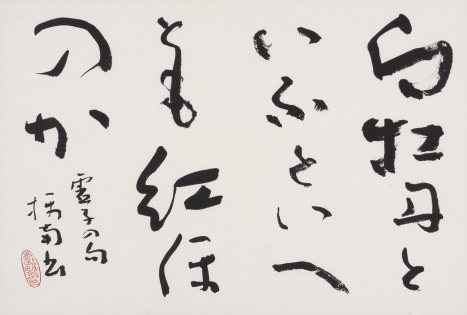 白牡丹と
いふといへ
ども紅ほ
のか
虚子の句
橫南書